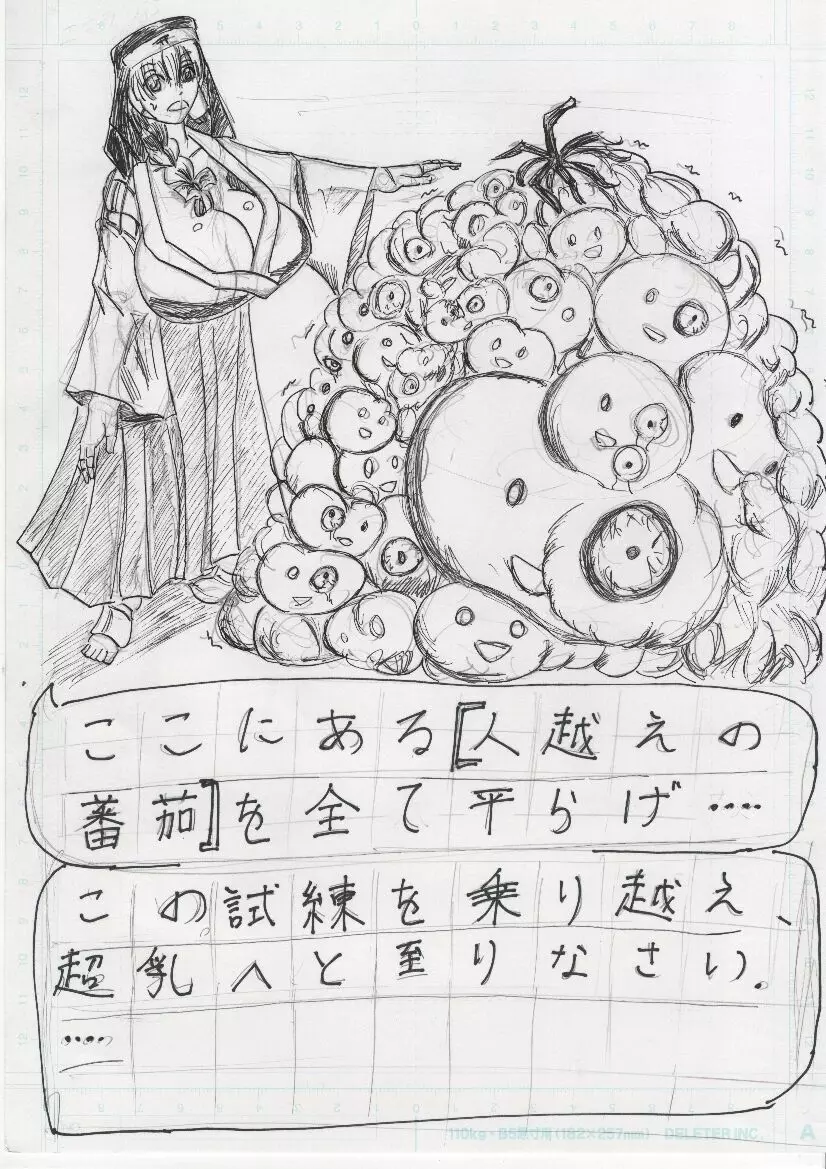 ここにある[人越えの
蕃茄]を全て平らげ‥‥
この試練を乗り越え、
超乳へと至りなさい。
‥‥
110kg・B5原寸用(182×257mm) DELETER INC. A